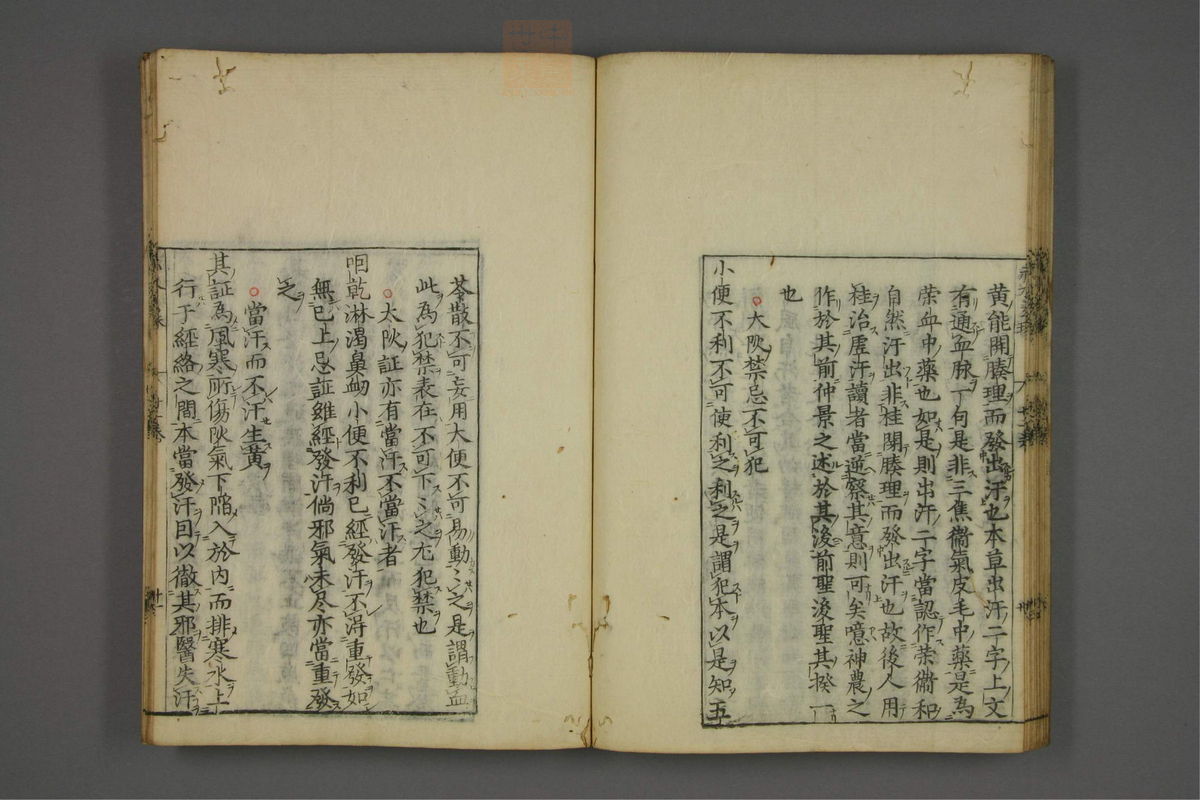 黄能開腠理而發出汗也本草出汗二字上文
有通血脉一句是非三焦衞氣皮毛中藥是為
榮血中藥也如是則出汗二字當認作榮衞和
自然汗出非桂開腠理而發出汗也故後人用
桂治虛汗讀者當逆察其意則可矣噫神農之
作於其前仲景之述於其後前聖後聖其揆一
也
大陽禁忌不可犯
小便不利不可使利之利之是謂犯本以是知五
苓散不可妄用大便不可易動〻之是謂動血
此為犯禁表在不可下〻之尤犯禁也
太陽証亦有當汗不當汗者
咽乾淋渴鼻衂小便不利已經發汗不得重發如
無已上忌証雖經發汗倘邪氣未尽亦當重發
之
當汗而不汗生黄
其証為風寒所傷陽氣下陷入於内而排寒水上
行于經絡之間本當發汗因以徹其邪醫失汗